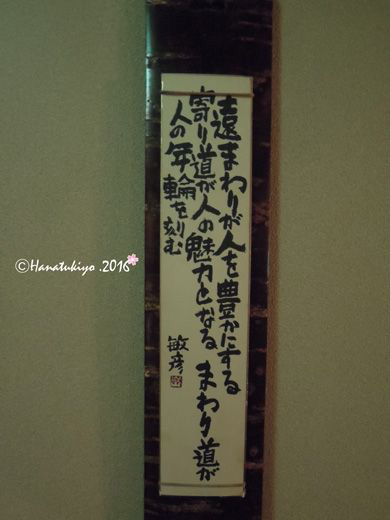 遠まわりが人を豊かにする
寄り道が人の魅力となる まわり道が
人の年輪を刻む
敏彦
©Hanatukiyo.2016